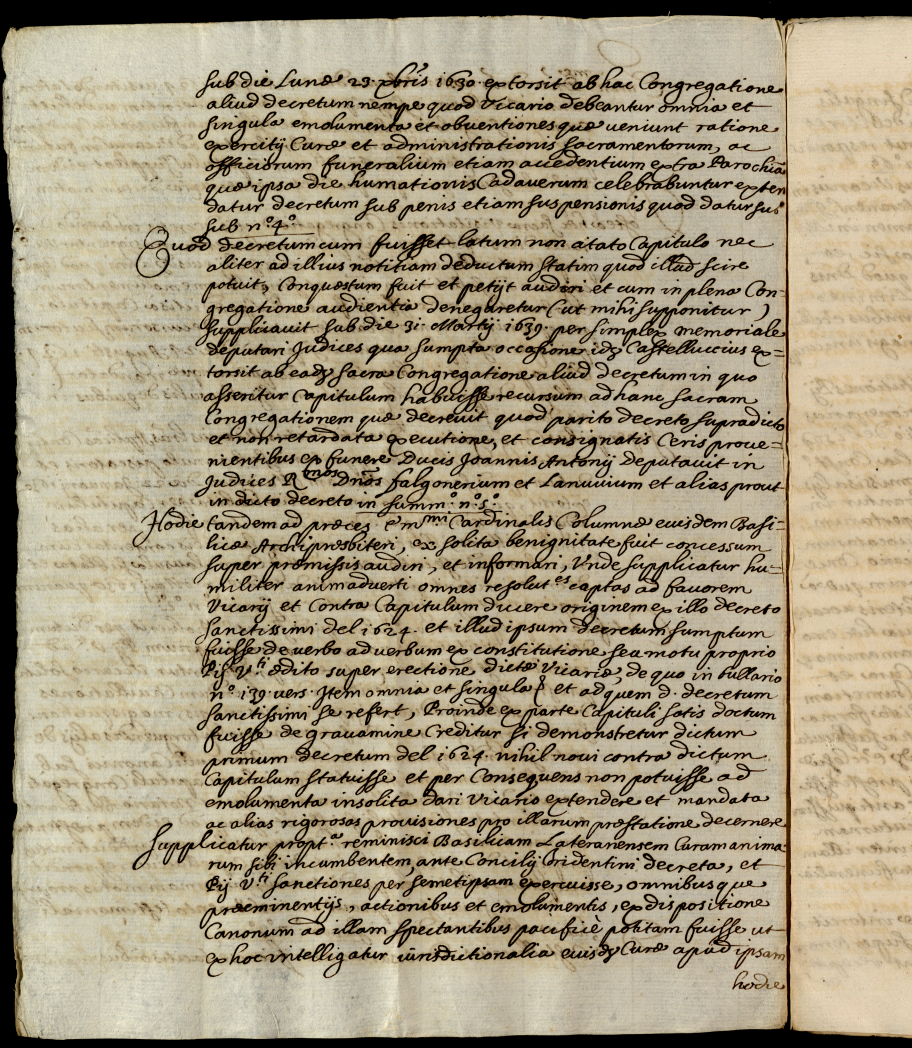 sub die Lunæ 23. xbris 1630. extorsit ab hac Congregatione
aliud decretum nempe quod Vicario debeantur omnia et
singula emolumenta et obuentiones quæ ueniunt ratione
exercitij Curæ et administrationis sacramentorum, ac
officiorum funeralium etiam accedentium extra Parochiã
quæ ipsa die humationis Cadauerum celebrabuntur exten
datur decretum sub penis etiam suspensionis quod datur
sub nº. 4º.
Quod decretum cum fuisset latum non citato Capitulo nec
aliter ad illius notitiam deductum statim quod illud scire
potuit, Conquæstum fuit et petijt audiri et cum in plena Con=
gregatione audientia denegaretur (ut mihi supponitur)
supplicauit sub die 31. Martij 1639. per simplex memoriale
deputari Judices qua sumpta occasione idẽ Castelluccius ex=
torsit ab eadẽ sacra Congregatione aliud decretum in quo
asseritur Capitulum habuisse recursum ad hanc sacram
Congregationem quæ decreuit quod parito decreto supradicto
et non retardata executione, et consignatis Ceris proue=
nientibus ex funere Ducis Joannis Antonij Deputauit in
Judices R.mos Dños falgonerium et Lanuuium et alias prout
in dicto decreto in summ.º nº. 5º.
Hodie tandem ad præces Em.mi Cardinalis Columnæ eiusdem Basi=
licæ Archipresbiteri, ex solita benignitate fuit concessum
super præmissis audiri, et informari, Vnde supplicatur hu=
militer animaduerti omnes resolut.es captas ad fauorem
Vicarij et Contra Capitulum ducere originem ex illo decreto
sanctissimi del 1624. et illud ipsum decretum sumptum
fuisse de uerbo ad uerbum ex constitutione seu motu proprio
Pij V.ti ædito super erectione dictæ Vicariæ, de quo in bullario
nº. 139 uers. Item omnia et singula & et ad quem d. decretum
sanctissimi se refert, Proinde ex parte Capituli satis doctum
fuisse de grauamine Creditur si demonstretur dictum
primum decretum del 1624. nihil noui contra dictum
Capitulum statuisse et per Consequens non potuisse ad
emolumenta insolita dari Vicario extendere et mandata
ac alias rigorosas prouisiones pro illarum præstatione decernere
Supplicatur propt.ª reminisci Basilicam Lateranensem Curam anima=
rum sibi incumbentem, ante Concilij Tridentini decreta, et
Pij V.ti sanctiones per semetipsam exercuisse, omnibus que
præeminentijs, actionibus et emolumentis, ex dispositione
Canonum ad illam spectantibus pacificè potitam fuisse ut
ex hoc intelligatur iurisdictionalia eiusdẽ Curæ apud ipsam
hodie